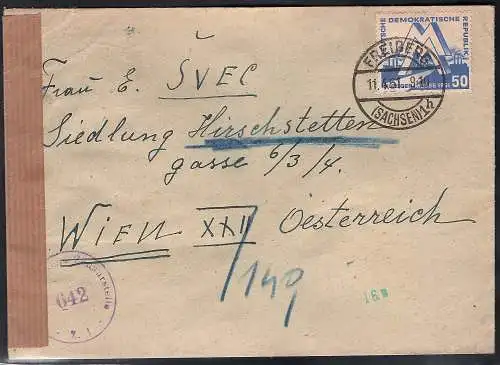 DEUTSCHE DEMOKRATISCHE REPUBLIK
50
FREIBERG
11.4.51
(SACHSEN)1h
Frau E. ŠVEC
Siedlung Hirschstetten
gasse 6/3/4.
WIEN XXII Oesterreich
/149
642
16